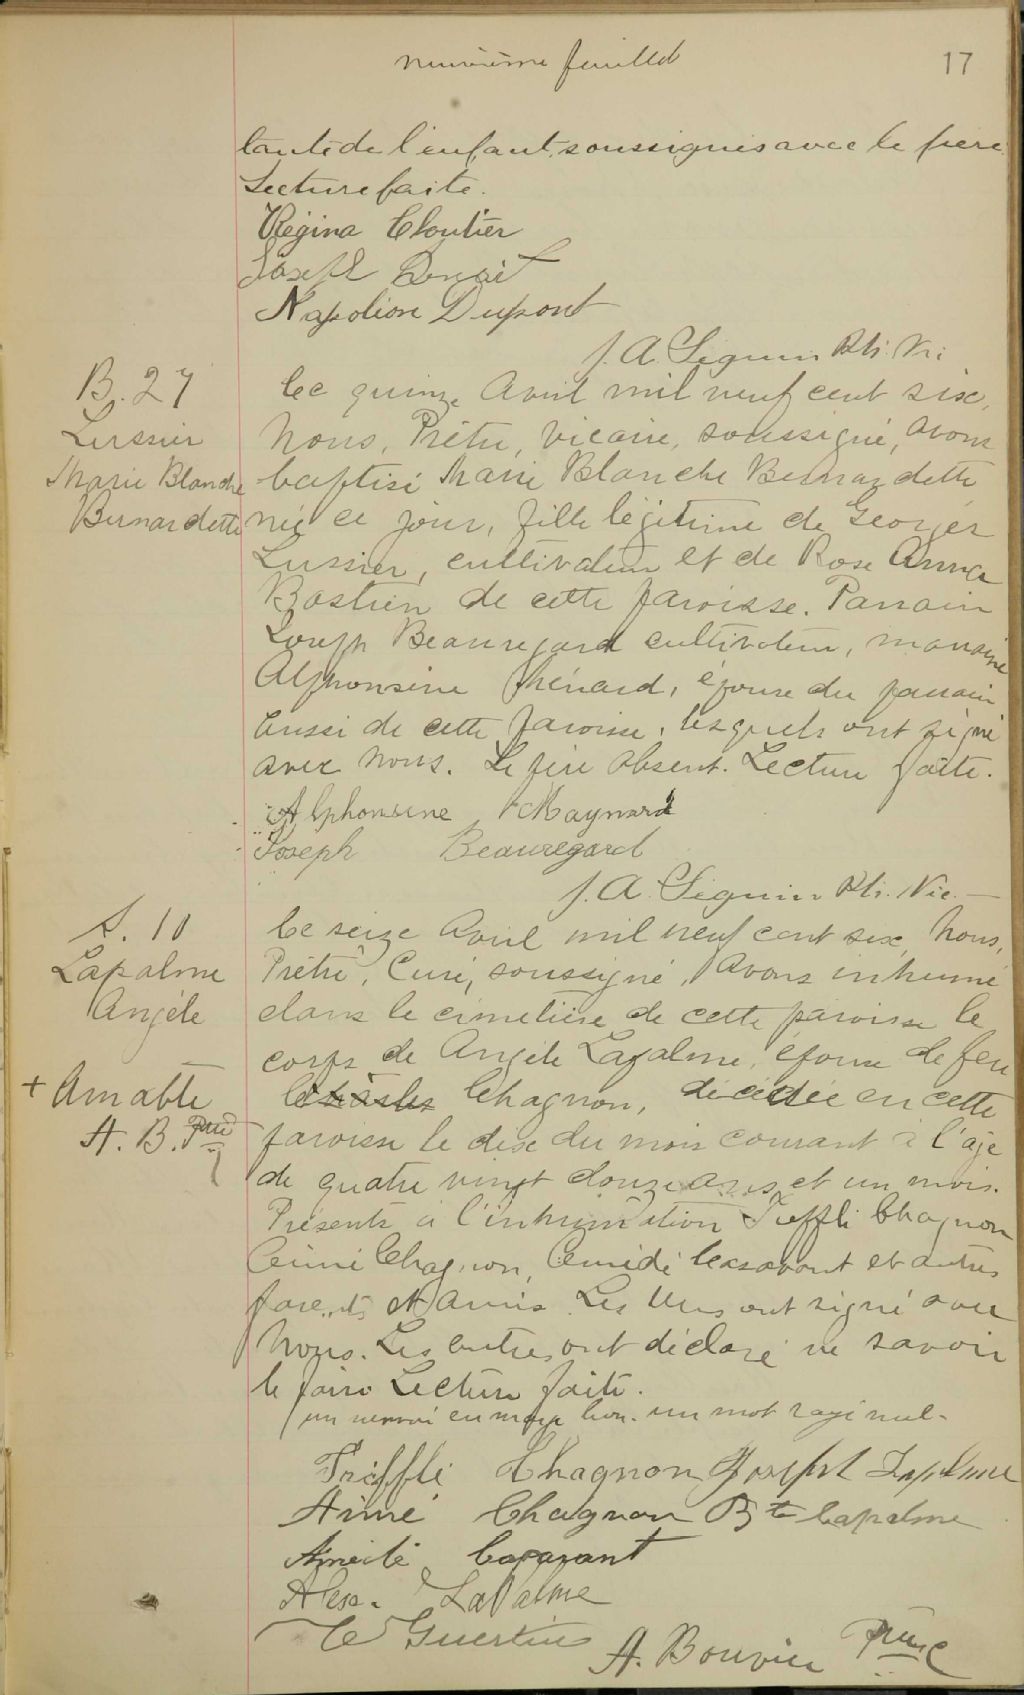 neuvième feuillet 17
tante de l'enfant, soussignés avec le père.
Lecture faite.
Régina Cloutier
Joseph Benoit
Napoléon Dupont
J. A. Séguin Ptr. Vic.
B. 27
Lussier
Marie Blanche
Bernardette
Ce quinze Avril mil neuf cent six,
Nous, Prêtre, vicaire, soussigné, avons
baptisé Marie Blanche Bernardette
née ce jour, fille légitime de Georges
Lussier, cultivateur et de Rose Anna
Bastien de cette paroisse. Parrain
Joseph Beauregard cultivateur, marraine
Alphonsine Ménard, épouse du parrain
aussi de cette paroisse, lesquels ont signé
avec nous. Le père absent. Lecture faite.
Alphonsine Maynard
Joseph Beauregard
J. A. Séguin Ptr. Vic.
S. 10
Lapalme
Angèle
Le seize Avril mil neuf cent six, Nous,
Prêtre, Curé, soussigné, Avons inhumé
dans le cimetière de cette paroisse le
corps de Angèle Lapalme, épouse de feu
+ Amable
A. B. Ptre
Charles Chagnon, décédée en cette
paroisse le dix du mois courant à l'age
de quatre vingt douze ans et un mois.
Présents à l'inhumation Trefflé Chagnon
Aimé Chagnon, Amédé Casavant et autres
parents et Amis. Les Uns ont signé avec
Nous. Les autres ont déclaré ne savoir
le faire Lecture faite.
un renvoi en marge bon. un mot rayé nul.
Trefflé Chagnon Joseph Lapalme
Aimé Chagnon Bte Lapalme
Amédé Casavant
Alex. LaPalme
Guertin
A. Bouvier Ptre